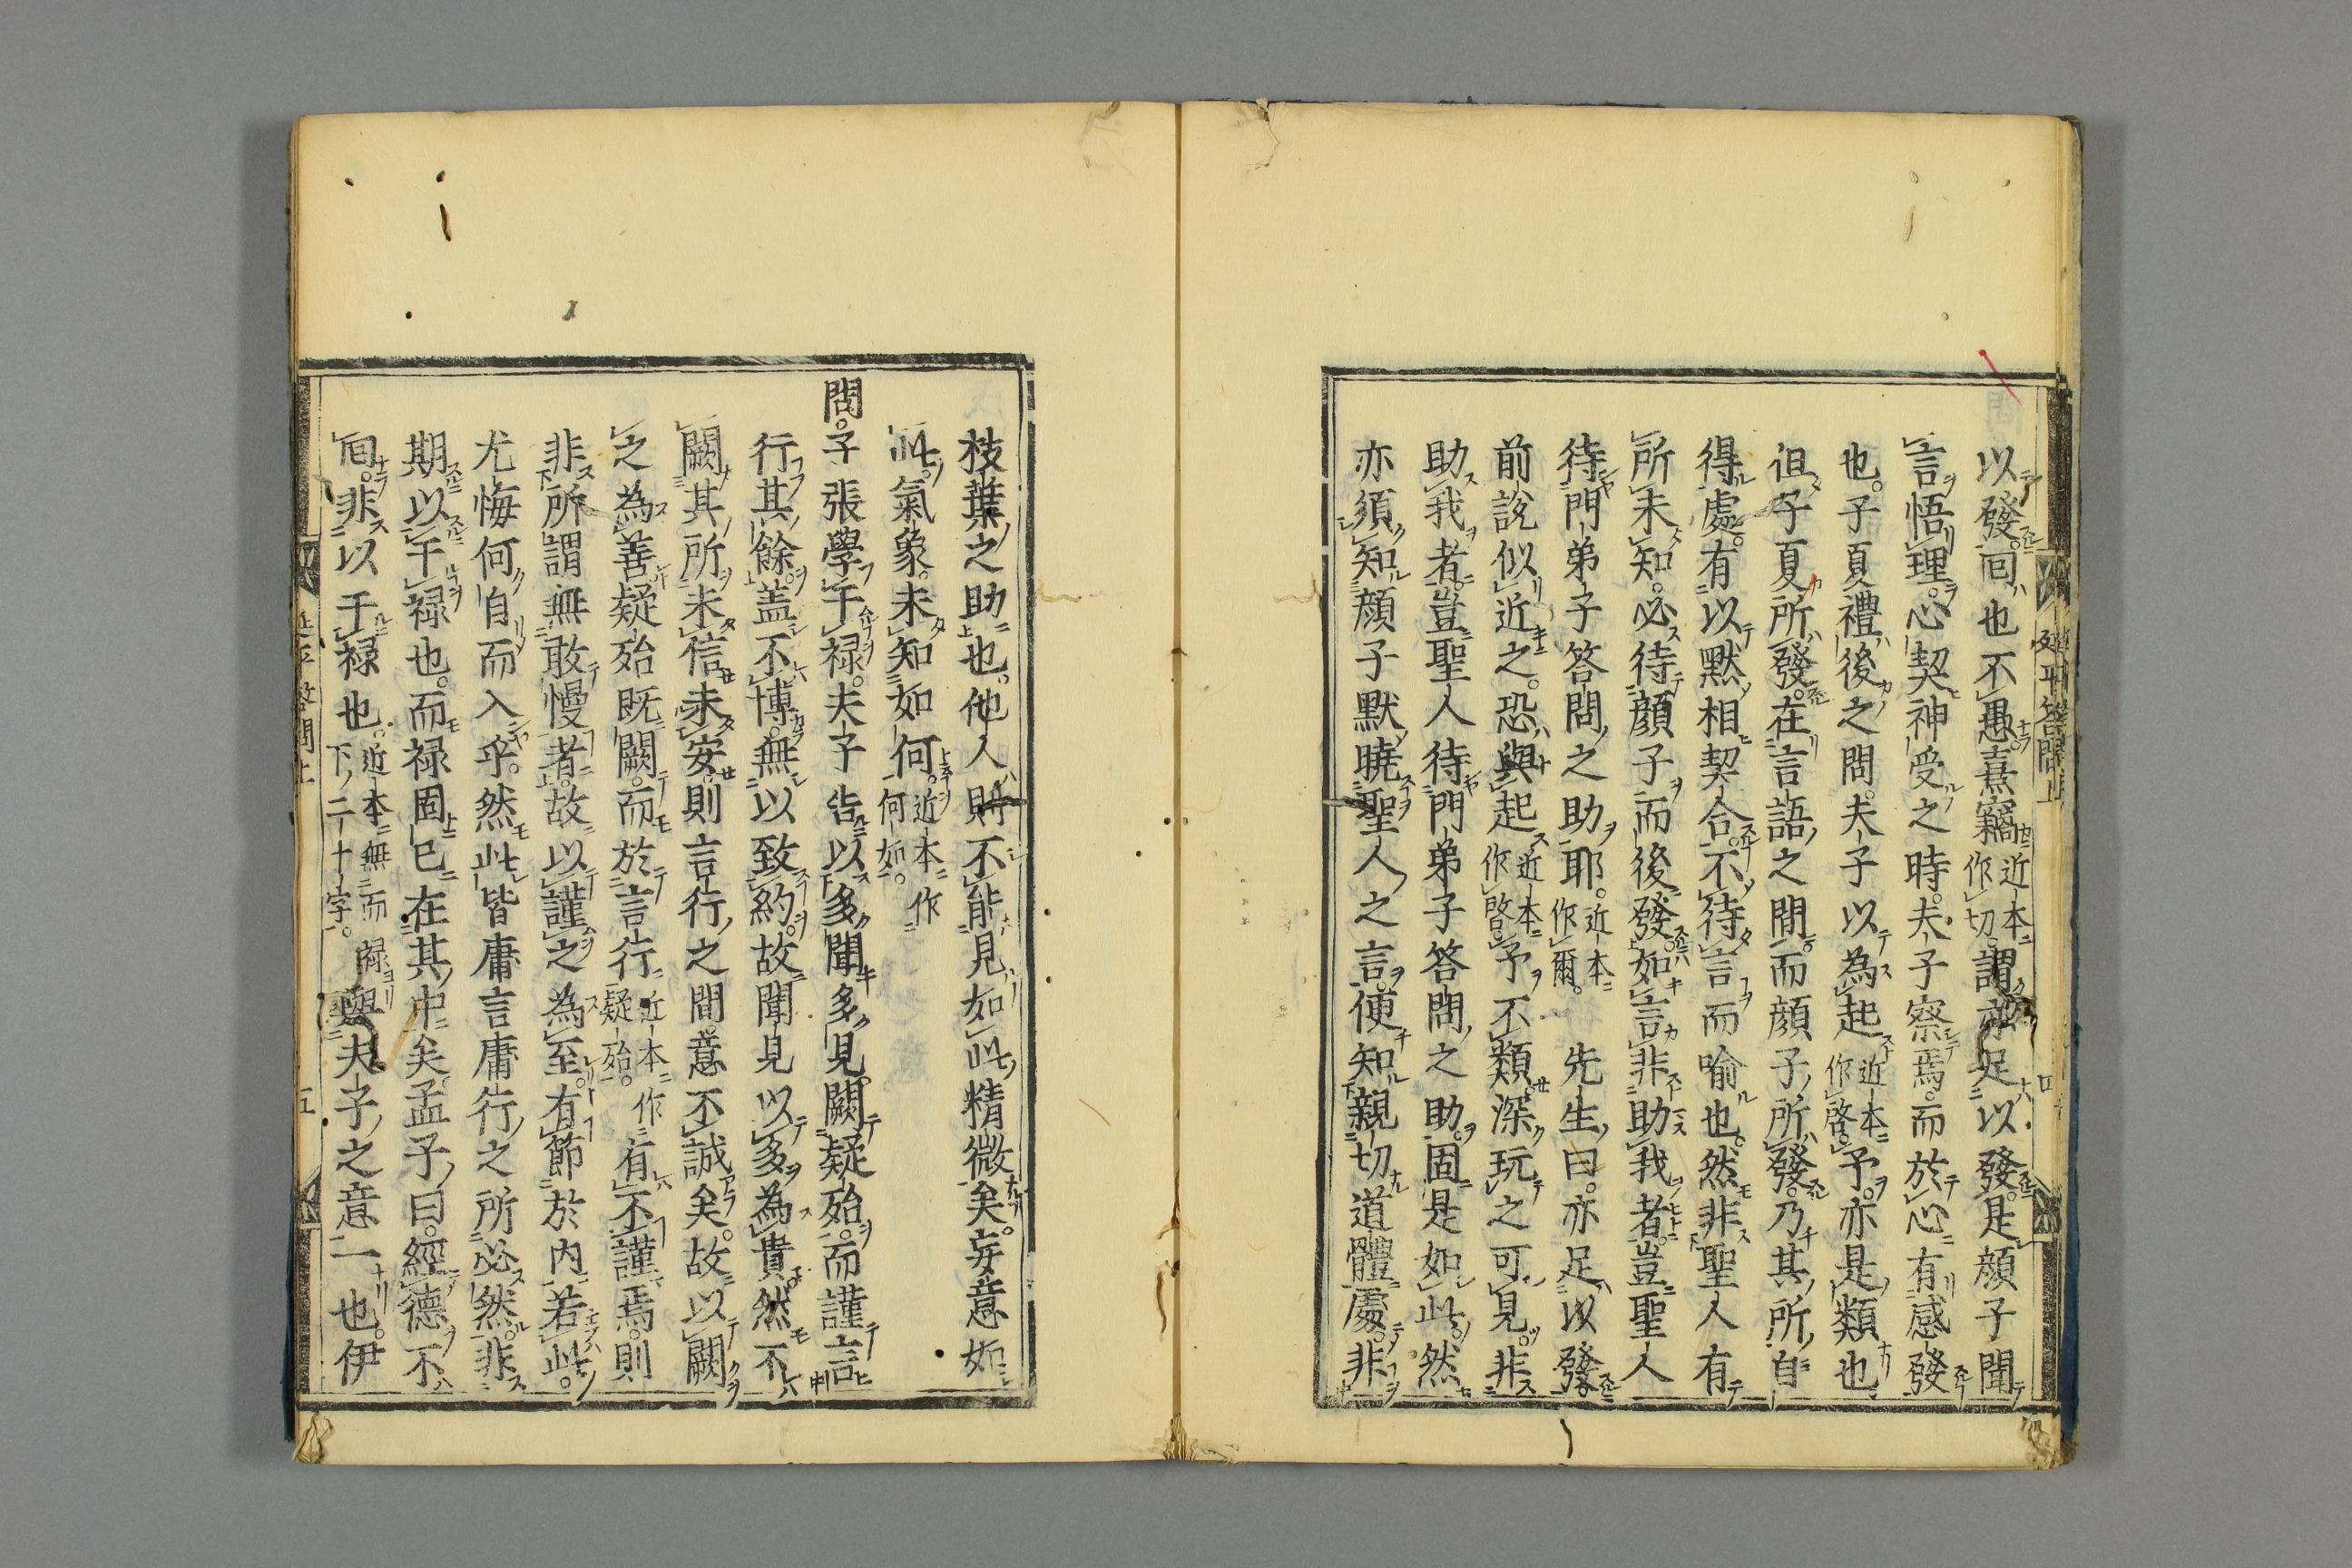 延平答問上　四
以發。囘也不愚。熹竊近本作切。謂亦足以發。是顔子聞
言悟理。心契神受之時。夫子察焉。而於心有感發
也。子夏禮後之問。夫子以為起近本作啓。予。亦是類也
但子夏所發。在言語之間。而顔子所發。乃其所自
得處。有以默相契合。不待言而喻也。然非聖人有
所未知。必待顔子而後發。如言非助我者。豈聖人
待門弟子答問之助耶。近本作爾。　先生曰。亦足以發。
前說似近之。恐與起近本作啓。予不類。深玩之可見。非
助我者。豈聖人待門弟子答問之助。固是如此。然
亦須知顔子默曉聖人之言。便知親切道體處。非
枝葉之助也。他人則不能見如此精微矣。妄意如
此氣象。未知如何。近本作何如。
問。子張學干禄。夫子告以多聞多見。闕疑殆。而謹言
行其餘。盖不博。無以致約。故聞見以多為貴。然不
闕其所未信未安。則言行之間。意不誠矣。故以闕
之為善。疑殆既闕。而於言行近本作疑殆。有不謹焉。則
非所謂無敢慢者。故以謹之為至。有節於内若此。
尤悔何自而入乎。然此皆庸言庸行之所必然。非
期以干禄也。而禄固已在其中矣。孟子曰。經德不
囘。非以干禄也。近本無而禄下二十字。與夫子之意一也。伊
延平答問上　五